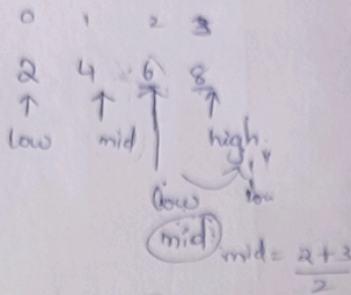 0 1 2 3
2 4 6 8
low mid high
low low
mid mid = 2+3
2